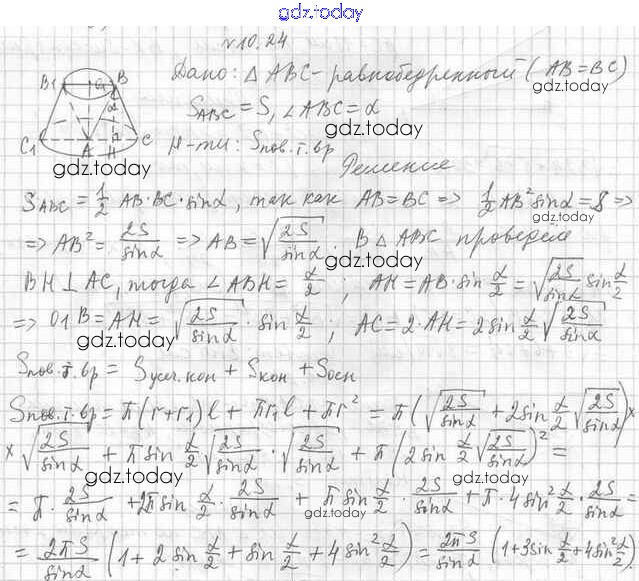 gdz.today
№10.24
B1 O1 B Дано: △ABC - равнобедренный (AB=BC)
α S_ABC = S, ∠ABC = α
gdz.today
C1 A H C
gdz.today Н-ти: Sпов.т.вр
Решение
S_ABC = 1/2 AB·BC·sinα, так как AB=BC => 1/2 AB² sinα = S =>
gdz.today
=> AB² = 2S/sinα => AB = √(2S/sinα). В △ABC проведём
gdz.today
BH ⊥ AC, тогда ∠ABH = α/2; AH = AB·sin α/2 = √(2S/sinα) sin α/2
=> O1B = AH = √(2S/sinα) · sin α/2; AC = 2·AH = 2 sin α/2 √(2S/sinα)
gdz.today
Sпов.т.вр = Sусеч.кон + Sкон + Sосн
Sпов.т.вр = π(r+r1)l + πr1l + πr² = π(√(2S/sinα) + 2sin α/2 √(2S/sinα))×
gdz.today
× √(2S/sinα) + π sin α/2 √(2S/sinα) · √(2S/sinα) + π(2 sin α/2 √(2S/sinα))² =
gdz.today
= π · 2S/sinα + 2π sin α/2 · 2S/sinα + π sin α/2 · 2S/sinα + π · 4sin² α/2 · 2S/sinα =
gdz.today
= 2πS/sinα (1 + 2 sin α/2 + sin α/2 + 4 sin² α/2) = 2πS/sinα (1 + 3sin α/2 + 4sin² α/2).
gdz.today